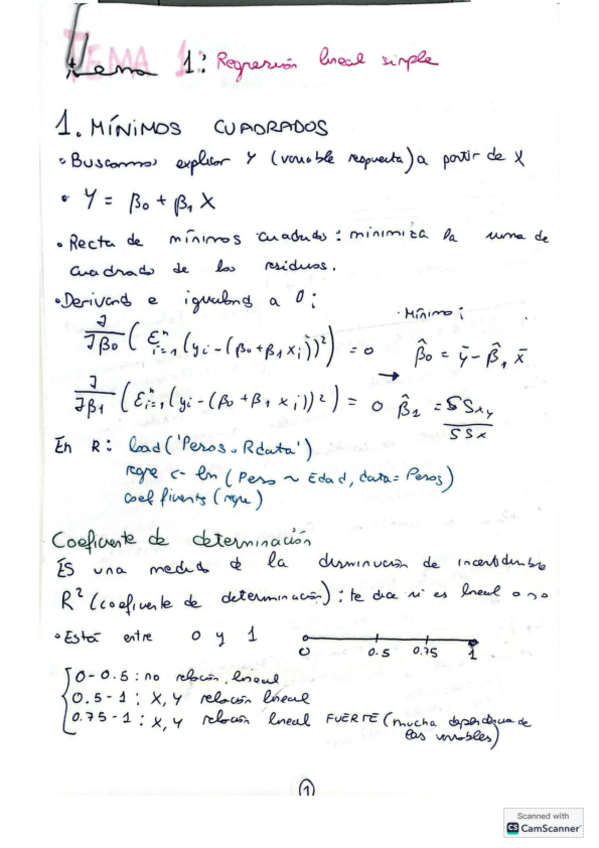 TEMA 1: Regresión lineal simple
1. MÍNIMOS CUADRADOS
• Buscamos explicar Y (variable respuesta) a partir de X
• Y = β₀ + β₁ X
• Recta de mínimos cuadrados: minimiza la suma de
cuadrado de los residuos.
• Derivand e igualand a 0:
· Mínimo:
∂/∂β₀ (Σⁿᵢ₌₁ (yᵢ - (β₀ + β₁ xᵢ))²) = 0   β̂₀ = ȳ - β̂₁ x̄
→
∂/∂β₁ (Σⁿᵢ₌₁ (yᵢ - (β₀ + β₁ xᵢ))²) = 0   β̂₁ = SSxy / SSx
En R: load('Pesos.Rdata')
regre <- lm (Peso ~ Edad, data = Pesos)
coefficients (regre)
Coeficiente de determinación
ES una medida de la disminución de incertidumbre
R² (coeficiente de determinación): te dice si es lineal o no
• Está entre 0 y 1
0 0.5 0.75 1
0-0.5: no relación lineal
0.5-1: X, Y relación lineal
0.75-1: X, Y relación lineal FUERTE (mucha dependencia de
las variables)
1
Scanned with
CS CamScanner